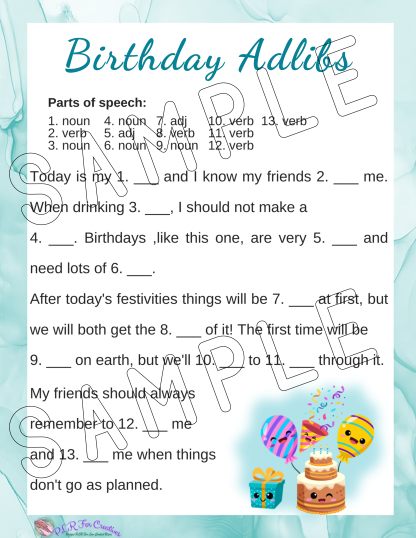 Birthday Adlibs
Parts of speech:
1. noun 4. noun 7. adj 10. verb 13. verb
2. verb 5. adj 8. verb 11. verb
3. noun 6. noun 9. noun 12. verb
Today is my 1. ___ and I know my friends 2. ___ me.
When drinking 3. ___, I should not make a
4. ___. Birthdays ,like this one, are very 5. ___ and
need lots of 6. ___.
After today's festivities things will be 7. ___ at first, but
we will both get the 8. ___ of it! The first time will be
9. ___ on earth, but we'll 10. ___ to 11. ___ through it.
My friends should always
remember to 12. ___ me
and 13. ___ me when things
don't go as planned.
SAMPLE
SAMPLE